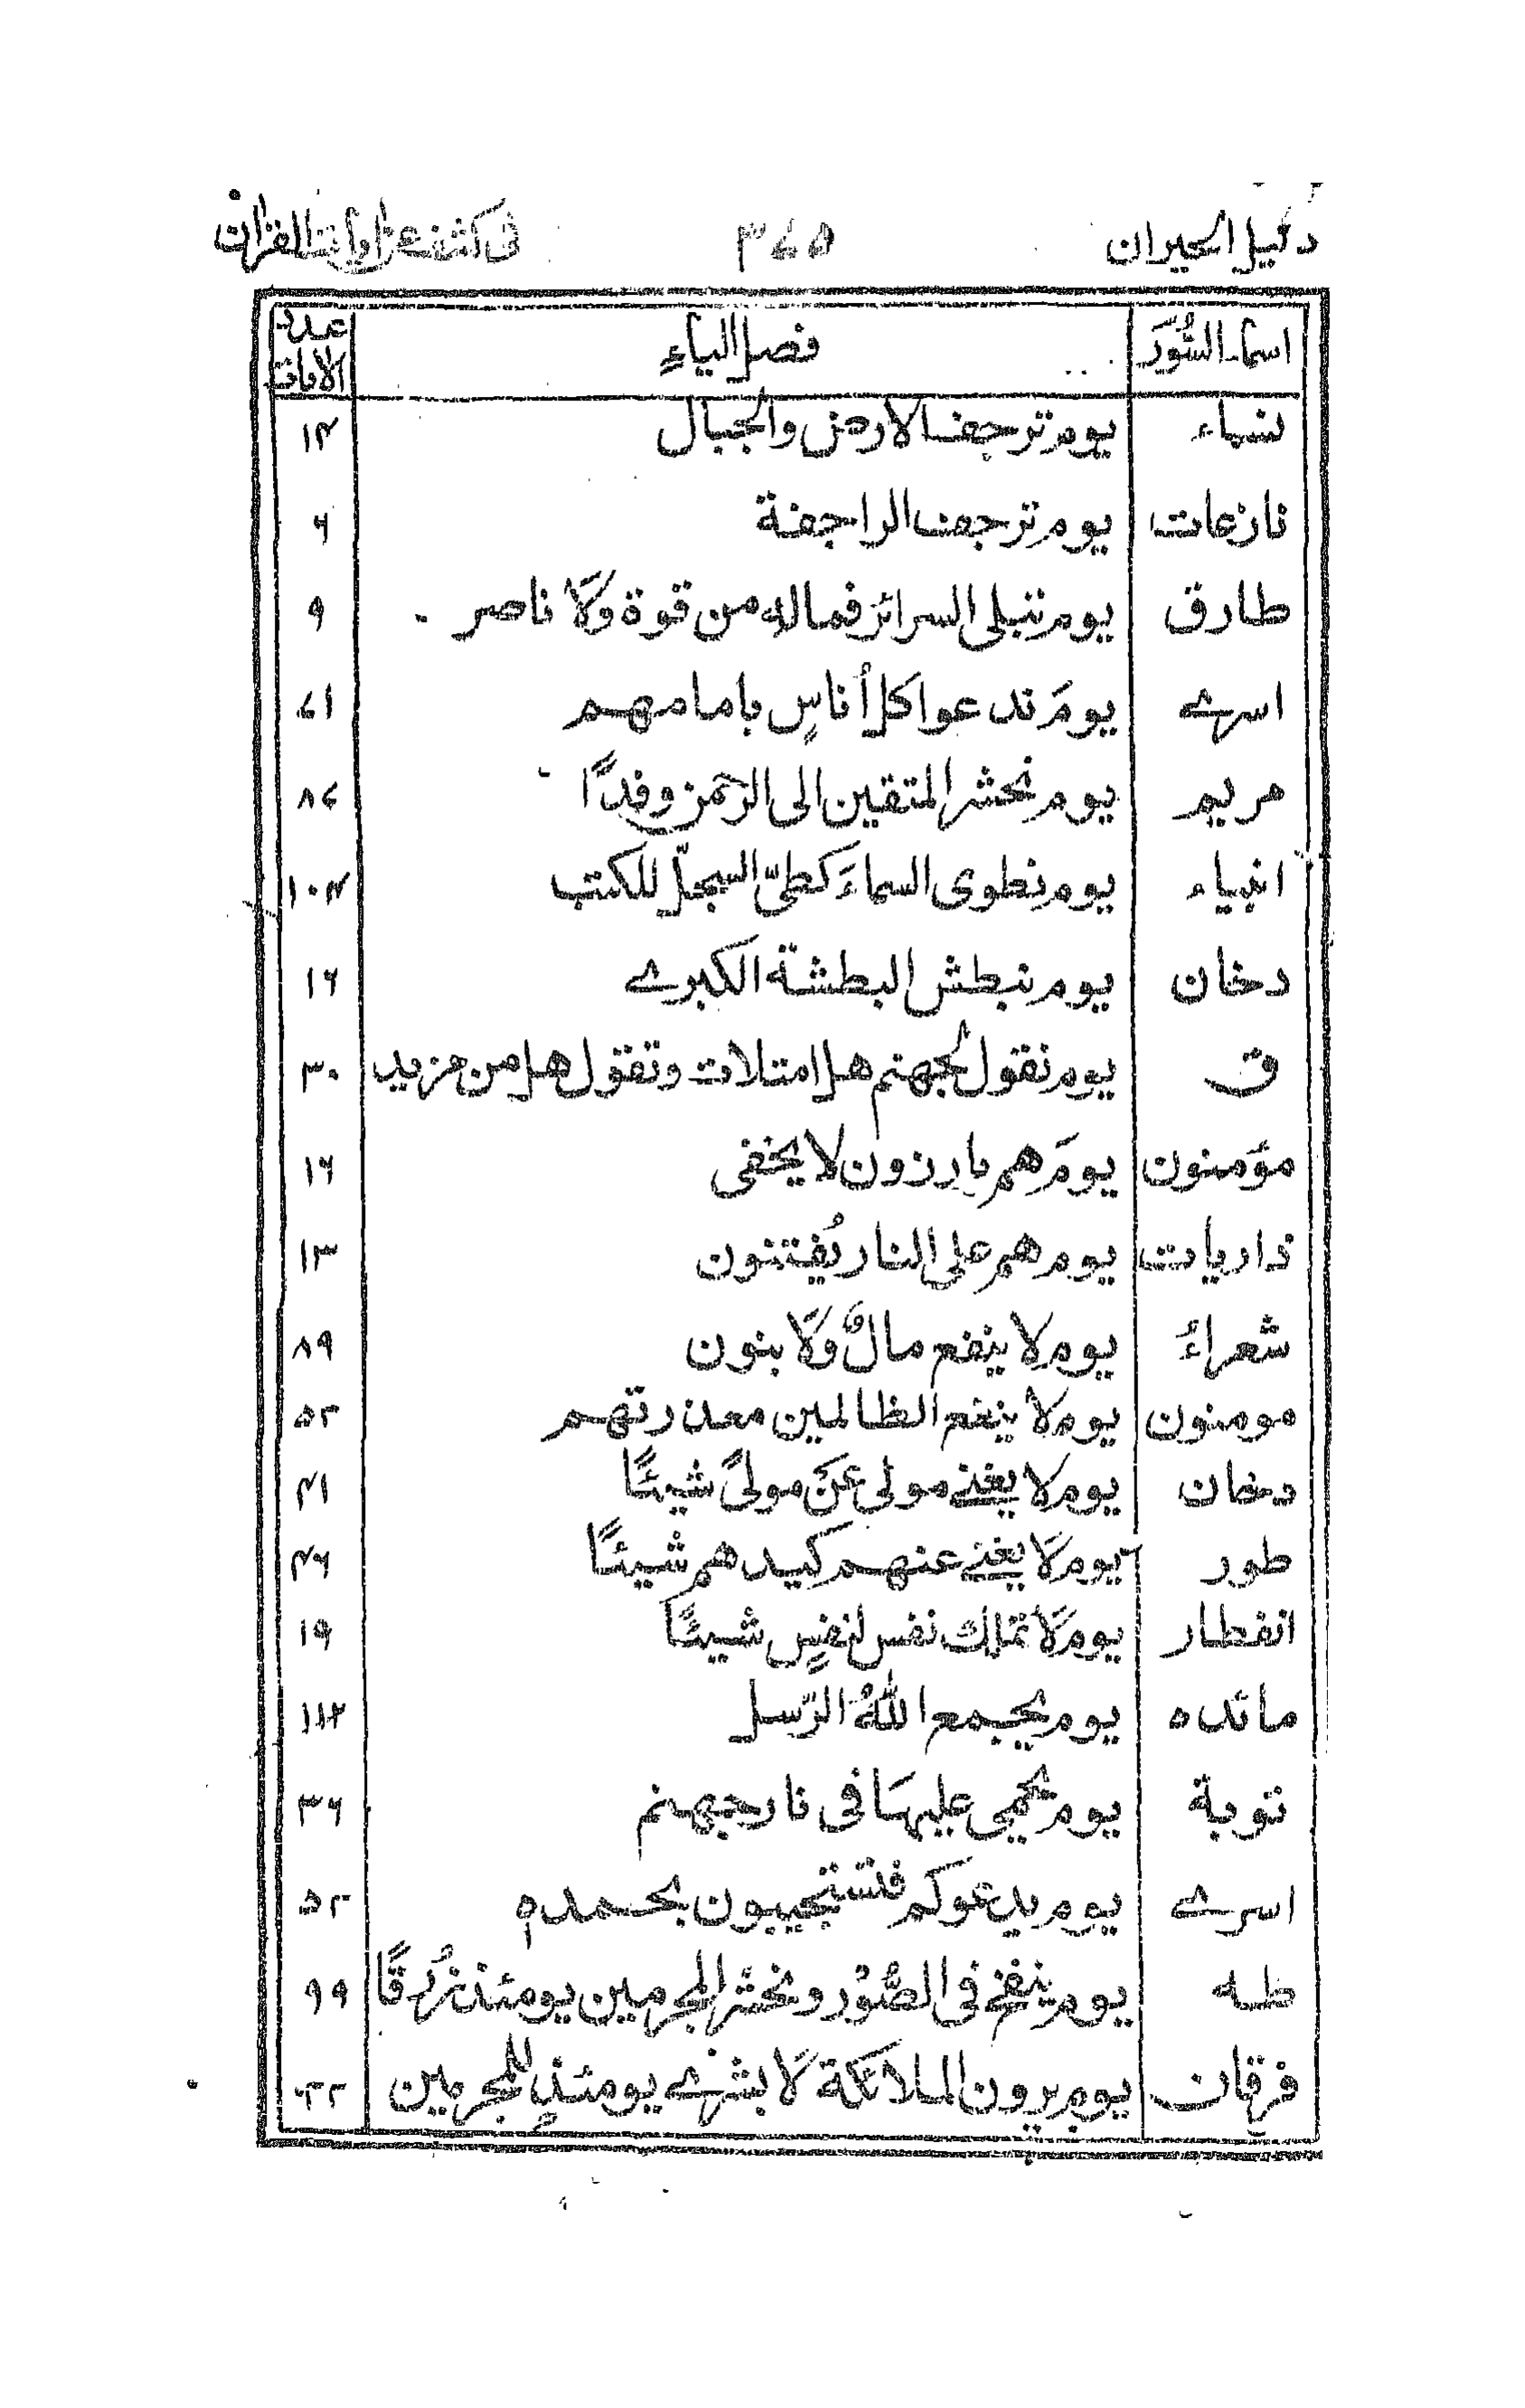 دليل الحيران ٣٤٥ فى كشف عن اٰيات القراٰن
اسماء السُّوَر فصل الياءِ عدد الاٰيات
نساء يوم ترجف الارض والجبال ١٤
نازعات يوم ترجف الراجفة ٦
طارق يوم تبلى السرائر فماله من قوة ولا ناصر ٩
اسرے يومَ ندعوا كل أناسٍ بامامهم ٧١
مريم يوم نحشر المتقين الى الرحمن وفدًا ٨٤
انبياء يوم نطوى السماءَ كطىّ السجلّ للكتب ١٠٤
دخان يوم نبطش البطشة الكبرے ١٦
ق يوم نقول لجهنم هل امتلات وتقول هل من مزيد ٣٠
مؤمنون يومَ هم بارزون لا يخفى ١٦
ذاريات يوم هم على النار يُفتنون ١٣
شعراءُ يوم لا ينفع مالٌ ولا بنون ٨٩
مومنون يوم لا ينفع الظالمين معذرتهم ٥٢
دخان يوم لا يغنے مولى عن مولىً شيئًا ٤١
طور يوم لا يغنے عنهم كيدهم شيئًا ٤٦
انفطار يوم لا تملك نفس لنفسٍ شيئًا ١٩
مائده يوم يجمع اللهُ الرّسل ١١٢
توبة يوم يحمى عليها فى نار جهنم ٣٦
اسرے يوم يدعوكم فتستجيبون بحمده ٥٢
طه يوم ينفخ فى الصُّوْر ونحشر المجرمين يومئذ زُرقًا ٩٩
فرقان يوم يرون الملائكة لا بشرٰے يومئذٍ للمجرمين ٢٢